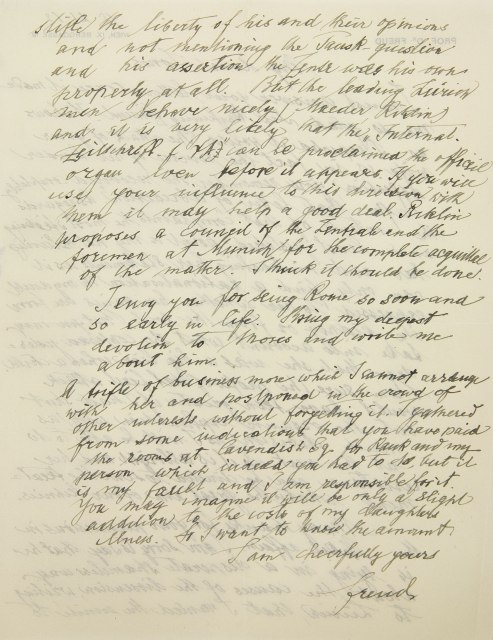 stifle the liberty of his and their opinions
and not mentioning the Tausk question
and his assertion the Zentr was his own
property at all. But the leading Zürich
men behave nicely (Maeder Riklin)
and it is very likely that the Internat.
Zeitschrift f. ΨA can be proclaimed the official
organ even before it appears. If you will
use your influence to this direction with
them it may help a good deal. Riklin
proposes a Council of the Zentrale and the
foremen at Munich for the complete
of the matter. I think it should be done.
I envy you for seing Rome so soon and
so early in life. Bring my deepest
devotion to Moses and write me
about him.
A trifle of business more which I cannot arrange
with her and postponed in the crowd of
other interests without forgetting it. I gathered
from some indications that you have paid
the rooms at Cavendish Sq. for Rank and my
person which indeed you had to do, but it
is my fault and I am responsible for it.
You may imagine it will be only a slight
addition to the costs of my daughters
illness. So I want to know the amount
I am cheerfully yours
Freud